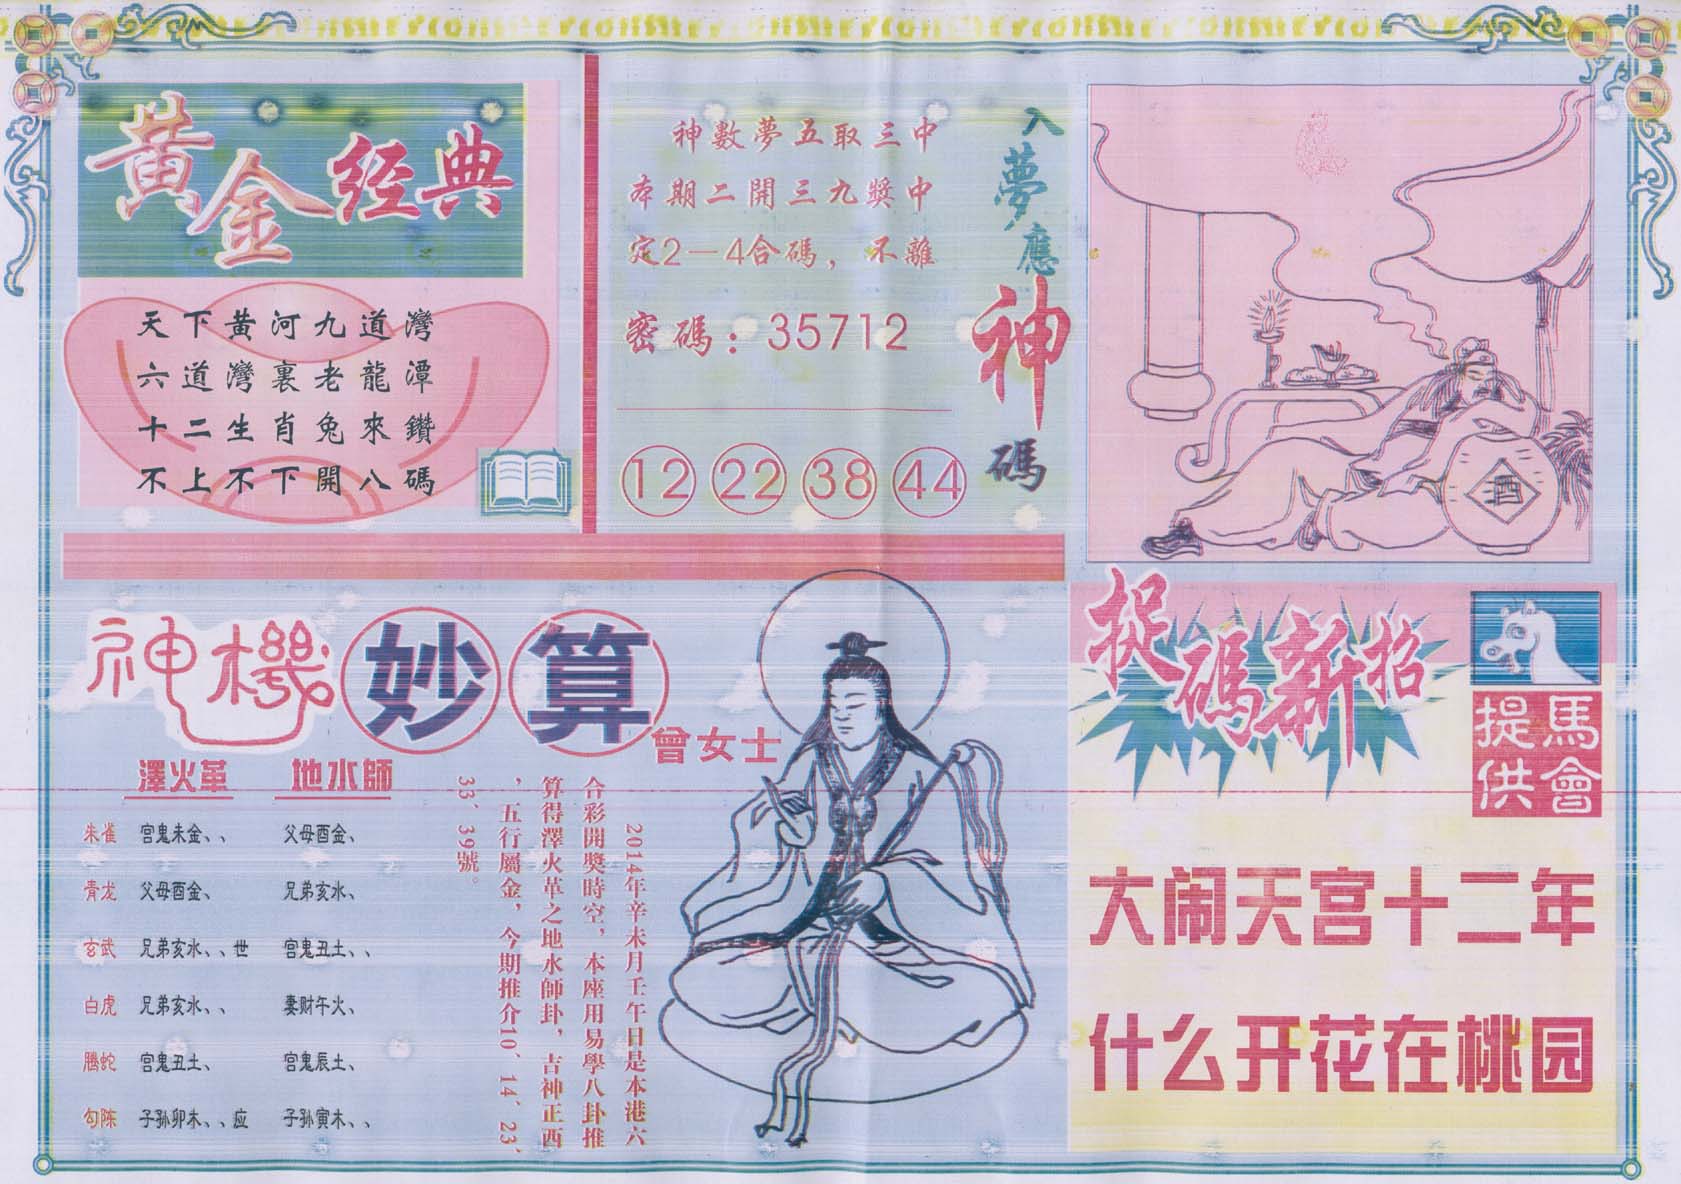 黃金经典
天下黃河九道灣
六道灣裏老龍潭
十二生肖兔來鑽
不上不下開八碼
入夢應神碼
神數夢五取三中
本期二開三九獎中
定2一4合碼，不離
密碼：35712
12 22 38 44
酒
神機妙算
曾女士
澤火革 地水師
朱雀 宫鬼未金、、 父母酉金、
青龙 父母酉金、 兄弟亥水、
玄武 兄弟亥水、、世 宫鬼丑土、、
白虎 兄弟亥水、、 妻财午火、
騰蛇 宫鬼丑土、 宫鬼辰土、
勾陈 子孙卯木、、应 子孙寅木、、
2014年辛未月壬午日是本港六
合彩開獎時空，本座用易學八卦推
算得澤火革之地水師卦，吉神正西
，五行屬金，今期推介10、14、23、
33、39號。
捉碼新招
馬會
提供
大闹天宫十二年
什么开花在桃园